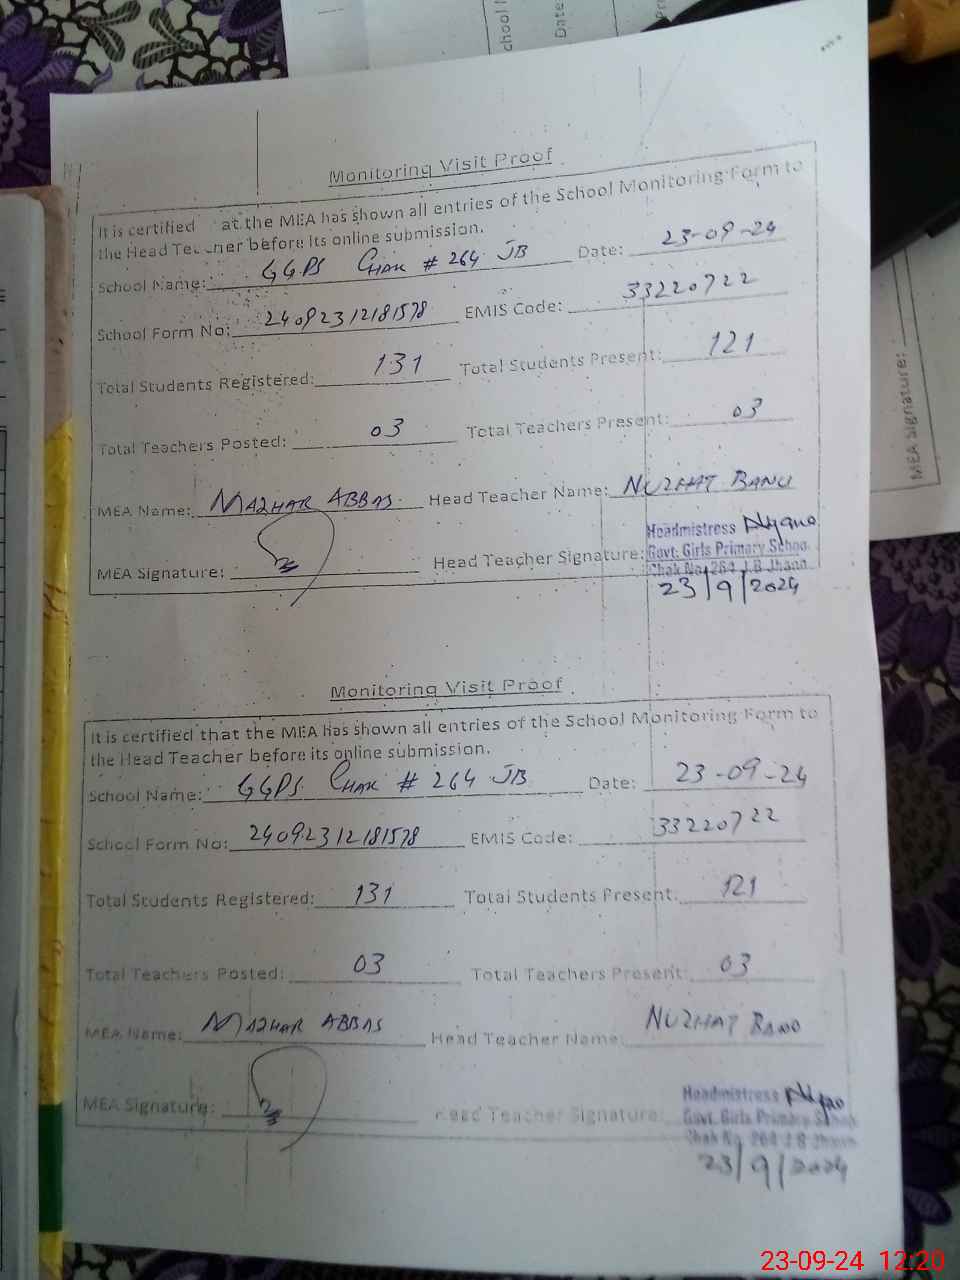 chool
Date
Monitoring Visit Proof
It is certified at the MEA has shown all entries of the School Monitoring Form to
the Head Teacher before its online submission.
School Name: GGPS CHAK # 264 JB Date: 23-09-24
School Form No: 24092312181578 EMIS Code: 33220722
Total Students Registered: 131 Total Students Present: 121
Total Teachers Posted: 03 Total Teachers Present: 03
MEA Name: MAZHAR ABBAS Head Teacher Name: NUZHAT BANO
MEA Signature: Head Teacher Signature:
Headmistress
Govt: Girls Primary School
Chak No. 264 J.B Jhang
23/9/2024
MEA Signature:
Monitoring Visit Proof
It is certified that the MEA has shown all entries of the School Monitoring Form to
the Head Teacher before its online submission.
School Name: GGPS CHAK # 264 JB Date: 23-09-24
School Form No: 24092312181578 EMIS Code: 33220722
Total Students Registered: 131 Total Students Present: 121
Total Teachers Posted: 03 Total Teachers Present: 03
MEA Name: MAZHAR ABBAS Head Teacher Name: NUZHAT BANO
MEA Signature: Head Teacher Signature:
Headmistress
Govt. Girls Primary School
Chak No. 264 J.B Jhang
23/9/2024
23-09-24 12:20